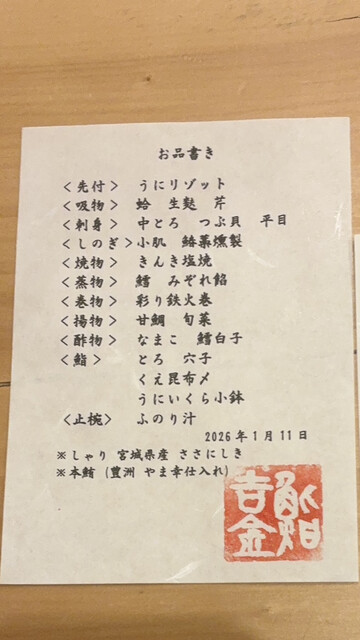 お品書き
<先付> うにリゾット
<吸物> 蛤 生麩 芹
<刺身> 中とろ つぶ貝 平目
<しのぎ>小肌 鰆藁燻製
<焼物> きんき塩焼
<蒸物> 鱈 みぞれ餡
<巻物> 彩り鉄火巻
<揚物> 甘鯛 旬菜
<酢物> なまこ 鱈白子
<鮨> とろ 穴子
くえ昆布〆
うにいくら小鉢
<止椀> ふのり汁
2026年1月11日
※しゃり 宮城県産 ささにしき
※本鮪 (豊洲 やま幸仕入れ)